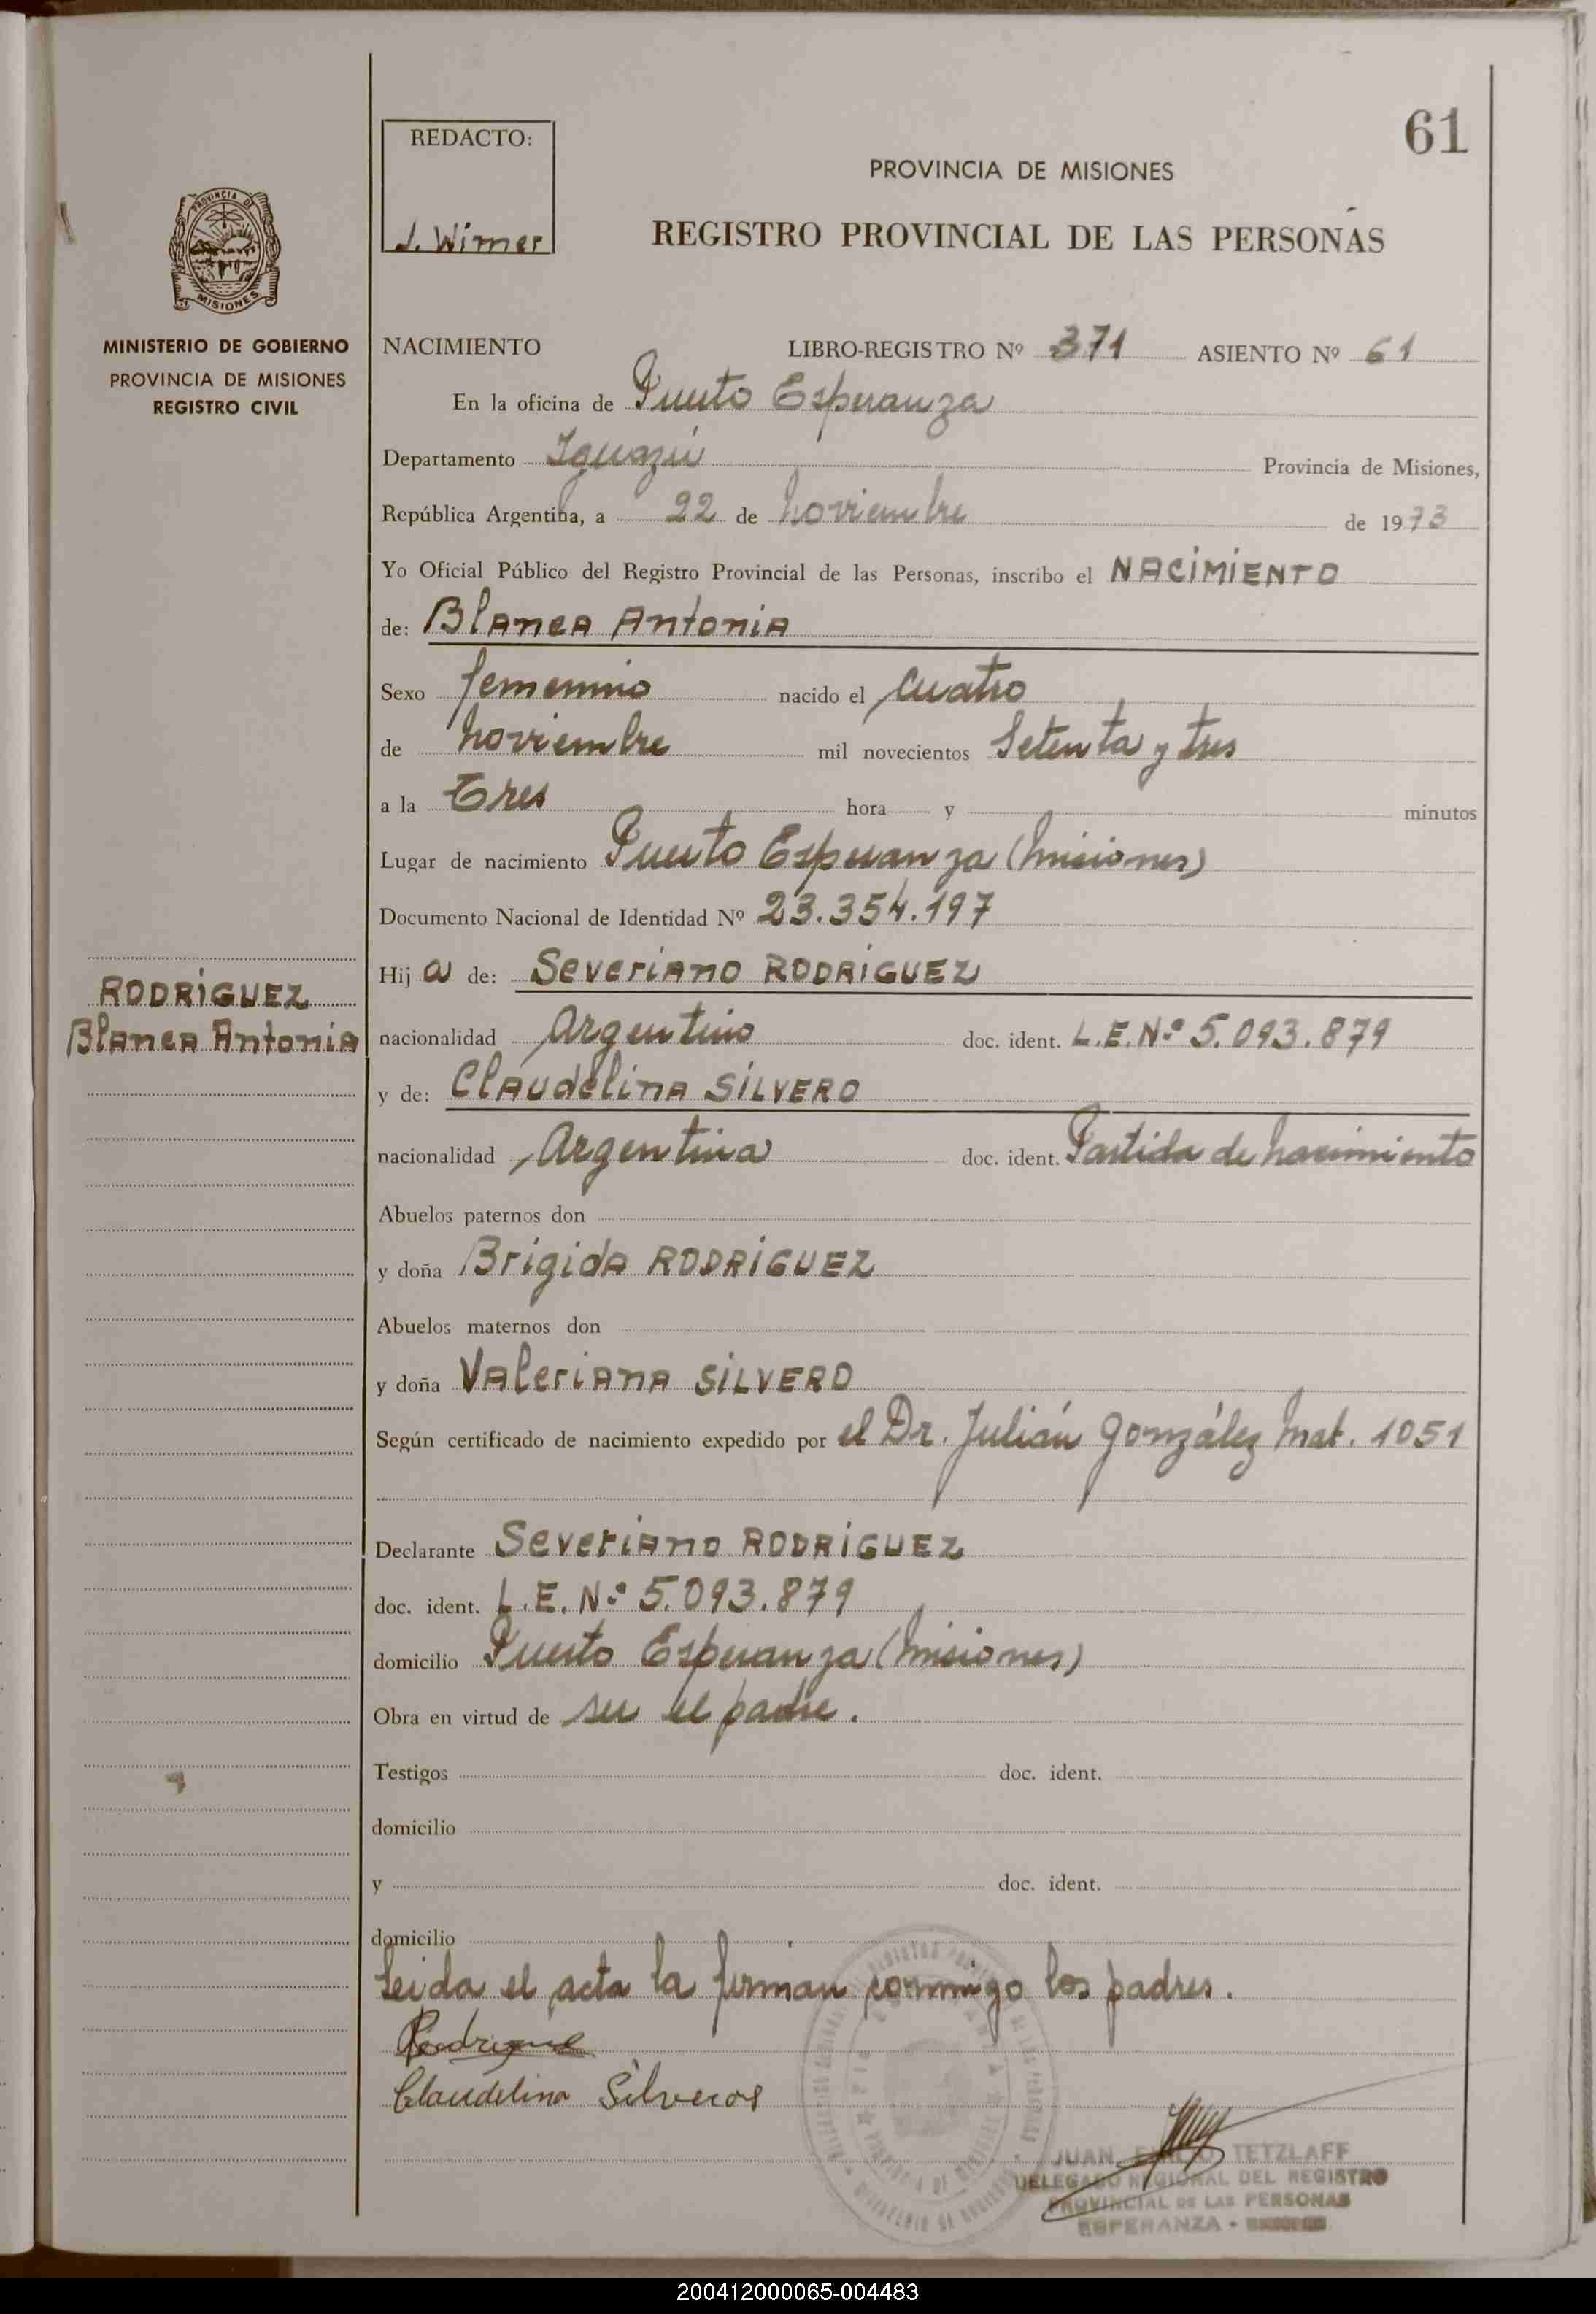 61
REDACTO:
J. Wimer
PROVINCIA DE MISIONES
REGISTRO PROVINCIAL DE LAS PERSONAS
PROVINCIA DE
MISIONES
MINISTERIO DE GOBIERNO
PROVINCIA DE MISIONES
REGISTRO CIVIL
NACIMIENTO LIBRO-REGISTRO Nº 371 ASIENTO Nº 61
En la oficina de Puerto Esperanza
Departamento Iguazú Provincia de Misiones,
República Argentina, a 22 de noviembre de 1973
Yo Oficial Público del Registro Provincial de las Personas, inscribo el NACIMIENTO
de: Blanca Antonia
Sexo femenino nacido el cuatro
de noviembre mil novecientos Setenta y tres
a la Tres hora y minutos
Lugar de nacimiento Puerto Esperanza (Misiones)
Documento Nacional de Identidad Nº 23.354.197
RODRIGUEZ
Blanca Antonia
Hij a de: Severiano RODRIGUEZ
nacionalidad Argentino doc. ident. L.E.Nº 5.093.879
y de: Claudelina SILVERO
nacionalidad Argentina doc. ident. Partida de nacimiento
Abuelos paternos don
y doña Brigida RODRIGUEZ
Abuelos maternos don
y doña Valeriana SILVERO
Según certificado de nacimiento expedido por el Dr. Julián González Mat. 1051
Declarante Severiano RODRIGUEZ
doc. ident. L.E.Nº 5.093.879
domicilio Puerto Esperanza (Misiones)
Obra en virtud de ser el padre.
Testigos doc. ident.
domicilio
y doc. ident.
domicilio
Leida el acta la firman conmigo los padres.
Claudelina Silveros
JUAN TETZLAFF
DELEGADO REGIONAL DEL REGISTRO
PROVINCIAL DE LAS PERSONAS
ESPERANZA -
200412000065-004483